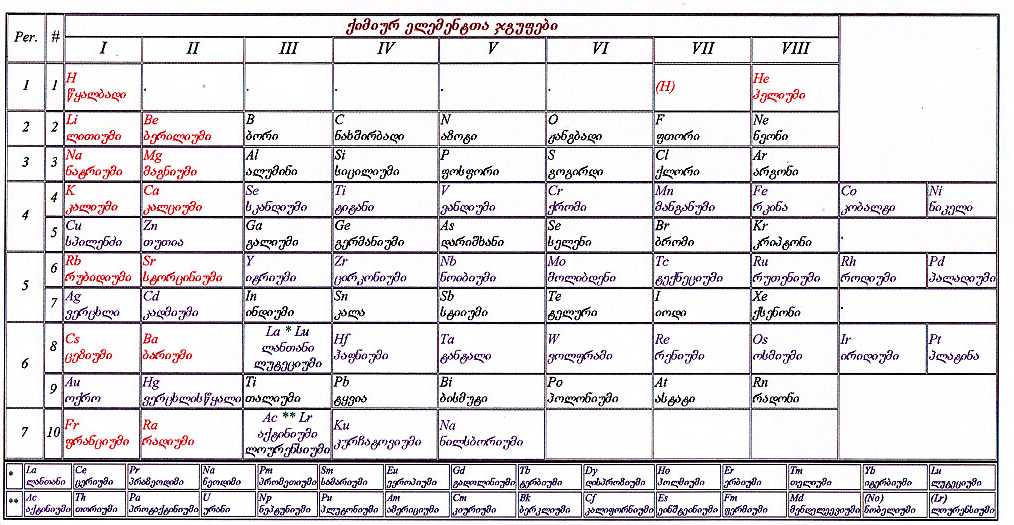 Per. # ქიმიურ ელემენტთა ჯგუფები
I II III IV V VI VII VIII
1 1 H . . . . . (H) He
წყალბადი ჰელიუმი
2 2 Li Be B C N O F Ne
ლითიუმი ბერილიუმი ბორი ნახშირბადი აზოტი ჟანგბადი ფთორი ნეონი
3 3 Na Mg Al Si P S Cl Ar
ნატრიუმი მაგნიუმი ალუმინი სიცილიუმი ფოსფორი გოგირდი ქლორი არგონი
4 4 K Ca Se Ti V Cr Mn Fe Co Ni
კალიუმი კალციუმი სკანდიუმი ტიტანი ვანდიუმი ქრომი მანგანუმი რკინა კობალტი ნიკელი
5 Cu Zn Ga Ge As Se Br Kr .
სპილენძი თუთია გალიუმი გერმანიუმი დარიშხანი სელენი ბრომი კრიპტონი
5 6 Rb Sr Y Zr Nb Mo Tc Ru Rh Pd
რუბიდიუმი სტორცინიუმი იტრიუმი ცირკონიუმი ნოიბიუმი მოლიბდენი ტექნეციუმი რუთენიუმი როდიუმი პალადიუმი
7 Ag Cd In Sn Sb Te I Xe .
ვერცხლი კადმიუმი ინდიუმი კალა სტიიუმი ტელური იოდი ქსენონი
6 8 Cs Ba La * Lu Hf Ta W Re Os Ir Pt
ცეზიუმი ბარიუმი ლანთანი ჰაფნიუმი ტანტალი ვოლფრამი რენიუმი ოსმიუმი ირიდიუმი პლატინა
ლუტეციუმი
9 Au Hg Ti Pb Bi Po At Rn
ოქრო ვერცხლისწყალი თალიუმი ტყვია ბისმუტი პოლონიუმი ასტატი რადონი
7 10 Fr Ra Ac ** Lr Ku Na
ფრანციუმი რადიუმი აქტინიუმი კურჩატოვიუმი ნილსბორიუმი
ლოურენსიუმი
* La Ce Pr Na Pm Sm Eu Gd Tb Dy Ho Er Tm Yb Lu
ლანთანი ცერიუმი პრაზეოდიმი ნეოდიმი პრომეთიუმი სამარიუმი ევროპიუმი გადოლინიუმი ტერბიუმი დისპროზიუმი ჰოლმიუმი ერბიუმი თულიუმი იტერბიუმი ლუტეციუმი
** Ac Th Pa U Np Pu Am Cm Bk Cf Es Fm Md (No) (Lr)
აქტინიუმი თორიუმი პროტაქტინიუმი ურანი ნეპტუნიუმი პლუტონიუმი ამერიციუმი კიურიუმი ბერკლიუმი კალიფორნიუმი ეინშტეინიუმი ფერმიუმი მენდელეევიუმი ნობელიუმი ლოურენსიუმი